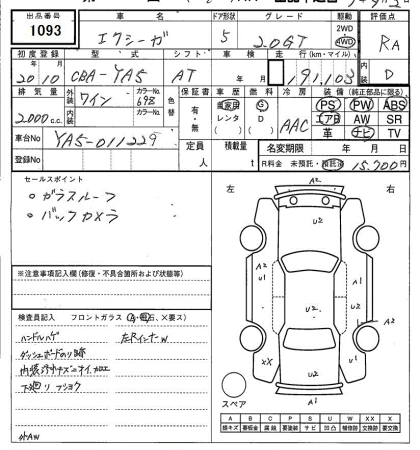 出品番号 車名 ドア形状 グレード 駆動 評価点
1093 エクシーガ 5 2.0GT 2WD 4WD RA
初度登録 型式 シフト 車検 走行(km・マイル)
20 年 10 月 CBA-YA5 AT 年 月 191,103 D
排気量 外装 ワイン カラーNo. 69B 色替 保証書 車歴 燃料 冷房 装備(純正部品に限る)
2,000 c.c. 内装 カラーNo. 有・無 自家用 レンタ G D AAC PS PW ABS
エアB AW SR
革 ナビ TV
車台No YA5-011229 定員 人 積載量 t 名変期限 年 月 日
登録No R料金 未預託・預託済 15,700円
セールスポイント
○ガラスルーフ
○バックカメラ
※注意事項記入欄(修復・不具合箇所および状態等)
検査員記入 フロントガラス(A・飛石、X要ス)
ハンドルハゲ 左Rインナーw
ダッシュボードのリ跡
内装
下廻リ フショク
外AW
左 右
A2
U2
A2 U1 A1
U2 U2
U1 A2
XX U1
A1
U2
スペア
A B C P S U W XX X
線キズ 要板金 腐蝕 要塗装 サビ 凹凸 補修跡 交換跡 要交換